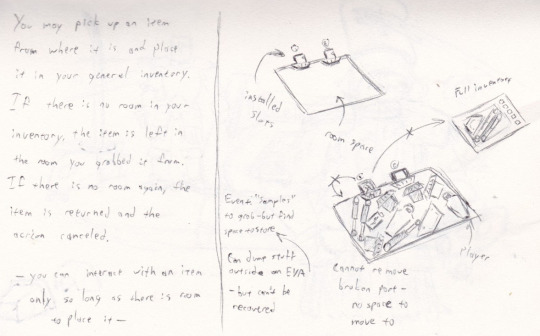 You may pick up an item
from where it is and place
it in your general inventory.
If there is no room in your
inventory, the item is left in
the room you grabbed it from.
If there is no room again, the
item is returned and the
action canceled.
- you can interact with an item
only so long as there is room
to place it -
installed
slots
room space
Full inventory
Event: "samples"
to grab - but find
space to store
Can dump stuff
outside on EVA
- but can't be
recovered
Cannot remove
broken part -
no space to
move to
Player